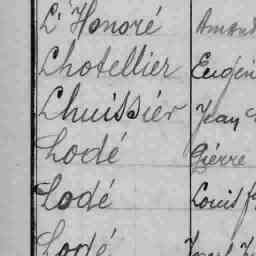 L'Honoré Amand
Lhotellier Eugén
Lhuissier Jean
Lodé Pierre
Lodé Louis
Lodé